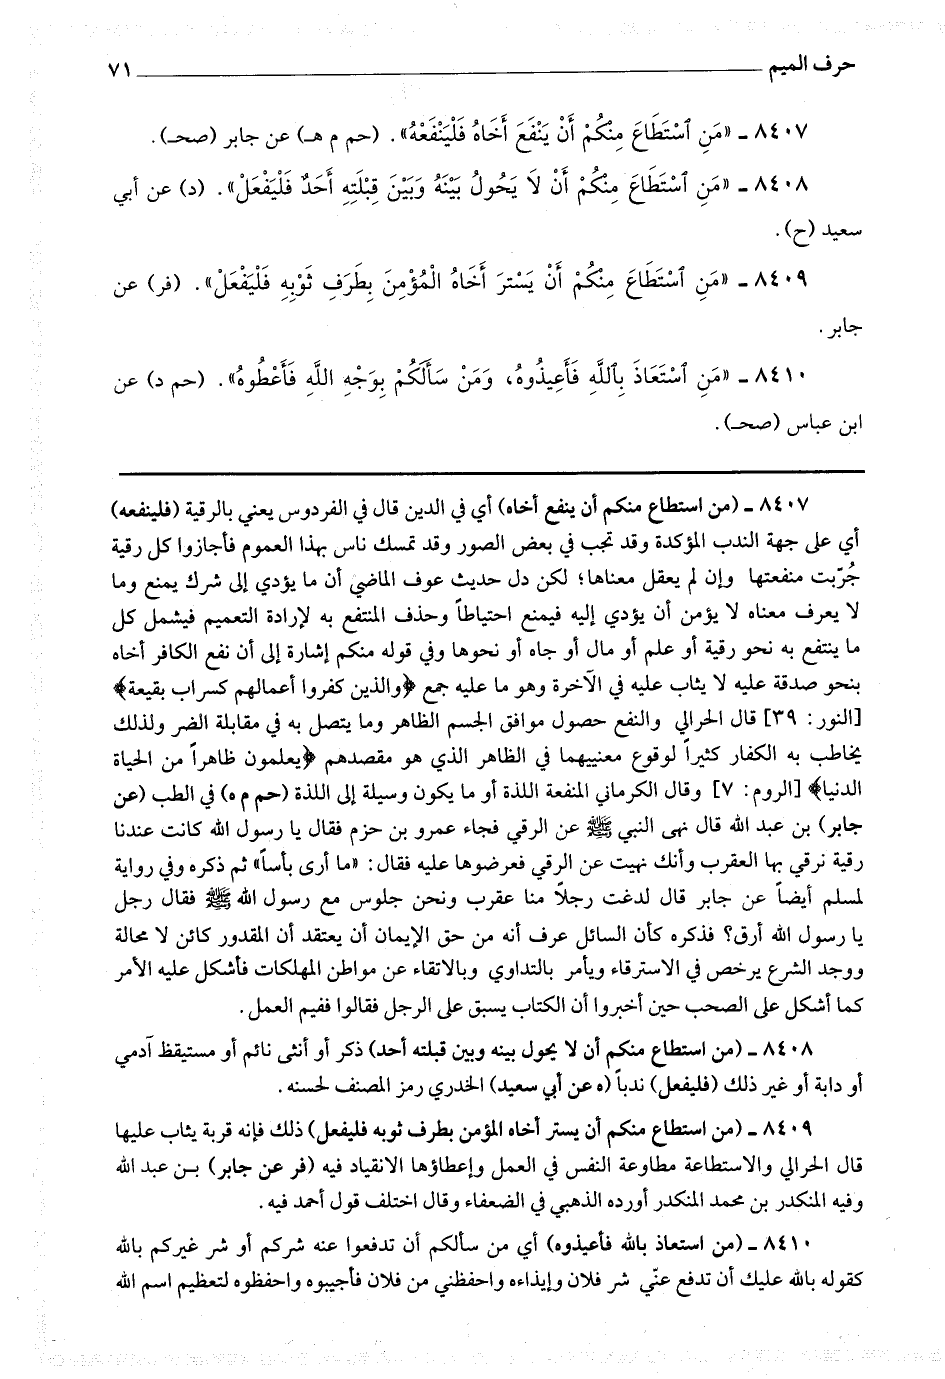 حرف الميم ــــــــــــــــــــــــــــــــ ٧١
٨٤٠٧ ـ «مَنِ ٱسْتَطَاعَ مِنْكُمْ أَنْ يَنْفَعَ أَخَاهُ فَلْيَنْفَعْهُ». (حم م هـ) عن جابر (صحـ).
٨٤٠٨ ـ «مَنِ ٱسْتَطَاعَ مِنْكُمْ أَنْ لَا يَحُولُ بَيْنَهُ وَبَيْنَ قِبْلَتِهِ أَحَدٌ فَلْيَفْعَلْ». (د) عن أبي
سعيد (ح).
٨٤٠٩ ـ «مَنِ ٱسْتَطَاعَ مِنْكُمْ أَنْ يَسْتَرَ أَخَاهُ الْمُؤْمِنَ بِطَرَفِ ثَوْبِهِ فَلْيَفْعَلْ». (فر) عن
جابر.
٨٤١٠ ـ «مَنِ ٱسْتَعَاذَ بِٱللَّهِ فَأَعِيذُوهُ، وَمَنْ سَأَلَكُمْ بِوَجْهِ اللَّهِ فَأَعْطُوهُ». (حم د) عن
ابن عباس (صحـ).
٨٤٠٧ ـ (من استطاع منكم أن ينفع أخاه) أي في الدين قال في الفردوس يعني بالرقية (فلينفعه)
أي على جهة الندب المؤكدة وقد تجب في بعض الصور وقد تمسك ناس بهذا العموم فأجازوا كل رقية
جُرّبت منفعتها وإن لم يعقل معناها؛ لكن دل حديث عوف الماضي أن ما يؤدي إلى شرك يمنع وما
لا يعرف معناه لا يؤمن أن يؤدي إليه فيمنع احتياطاً وحذف المنتفع به لإرادة التعميم فيشمل كل
ما ينتفع به نحو رقية أو علم أو مال أو جاه أو نحوها وفي قوله منكم إشارة إلى أن نفع الكافر أخاه
بنحو صدقة عليه لا يثاب عليه في الآخرة وهو ما عليه جمع ﴿والذين كفروا أعمالهم كسراب بقيعة﴾
[النور: ٣٩] قال الحرالي والنفع حصول موافق الجسم الظاهر وما يتصل به في مقابلة الضر ولذلك
يخاطب به الكفار كثيراً لوقوع معنييهما في الظاهر الذي هو مقصدهم ﴿يعلمون ظاهراً من الحياة
الدنيا﴾ [الروم: ٧] وقال الكرماني المنفعة اللذة أو ما يكون وسيلة إلى اللذة (حم م ه) في الطب (عن
جابر) بن عبد الله قال نهى النبي ﷺ عن الرقي فجاء عمرو بن حزم فقال يا رسول الله كانت عندنا
رقية نرقي بها العقرب وأنك نهيت عن الرقي فعرضوها عليه فقال: «ما أرى بأساً» ثم ذكره وفي رواية
لمسلم أيضاً عن جابر قال لدغت رجلاً منا عقرب ونحن جلوس مع رسول الله ﷺ فقال رجل
يا رسول الله أرق؟ فذكره كأن السائل عرف أنه من حق الإيمان أن يعتقد أن المقدور كائن لا محالة
ووجد الشرع يرخص في الاسترقاء ويأمر بالتداوي وبالاتقاء عن مواطن المهلكات فأشكل عليه الأمر
كما أشكل على الصحب حين أخبروا أن الكتاب يسبق على الرجل فقالوا ففيم العمل.
٨٤٠٨ ـ (من استطاع منكم أن لا يحول بينه وبين قبلته أحد) ذكر أو أنثى نائم أو مستيقظ آدمي
أو دابة أو غير ذلك (فليفعل) ندباً (ه عن أبي سعيد) الخدري رمز المصنف لحسنه.
٨٤٠٩ ـ (من استطاع منكم أن يستر أخاه المؤمن بطرف ثوبه فليفعل) ذلك فإنه قربة يثاب عليها
قال الحرالي والاستطاعة مطاوعة النفس في العمل وإعطاؤها الانقياد فيه (فر عن جابر) بـن عبد الله
وفيه المنكدر بن محمد المنكدر أورده الذهبي في الضعفاء وقال اختلف قول أحمد فيه.
٨٤١٠ ـ (من استعاذ بالله فأعيذوه) أي من سألكم أن تدفعوا عنه شركم أو شر غيركم بالله
كقوله بالله عليك أن تدفع عنّي شر فلان وإيذاءه واحفظني من فلان فأجيبوه واحفظوه لتعظيم اسم الله